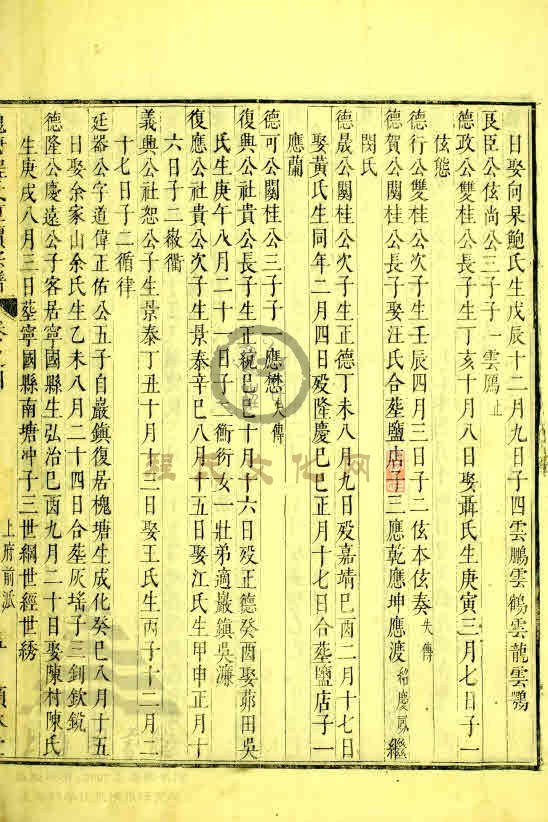 日娶向杲鮑氏生戊辰十二月九日子四雲鵬雲鶴雲龍雲鶚
良臣公伭尚公三子子一雲鴈止
德政公雙桂公長子生丁亥十月八日娶聶氏生庚寅三月七日子一
伭態
德行公雙桂公次子生壬辰四月三日子二伭本伭奏失傳
德賀公闗桂公長子娶汪氏合塟鹽店子三應乾應坤應渡 繼
閔氏
德晟公闗桂公次子生正德丁未八月九日殁嘉靖己酉二月十七日
娶黃氏生同年二月四日殁隆慶己巳正月十七日合塟鹽店子一
應蘭
德可公闗桂公三子子一應懋失傳
復興公社貴公長子生正統己巳十月十六日殁正德癸酉娶茆田吳
氏生庚午八月二十一日子二衝衍女一壯弟適巖鎮吳濂
復應公社貴公次子生景泰辛巳八月十五日娶江氏生甲申正月十
六日子二㣲衢
義興公社恕公子生景泰丁丑十月十三日娶王氏生丙子十二月二
十七日子二循律
廷器公字道偉正佑公五子自巖鎮復居槐塘生成化癸巳八月十五
日娶余家山余氏生乙未八月二十四日合塟灰塪子三釗欽銳
德隆公慶遠公子客居寧國縣生弘治己酉九月二十日娶陳村陳氏
生庚戌八月三日塟寧國縣南塘冲子三世綱世經世綉
上府前派
程氏文化网